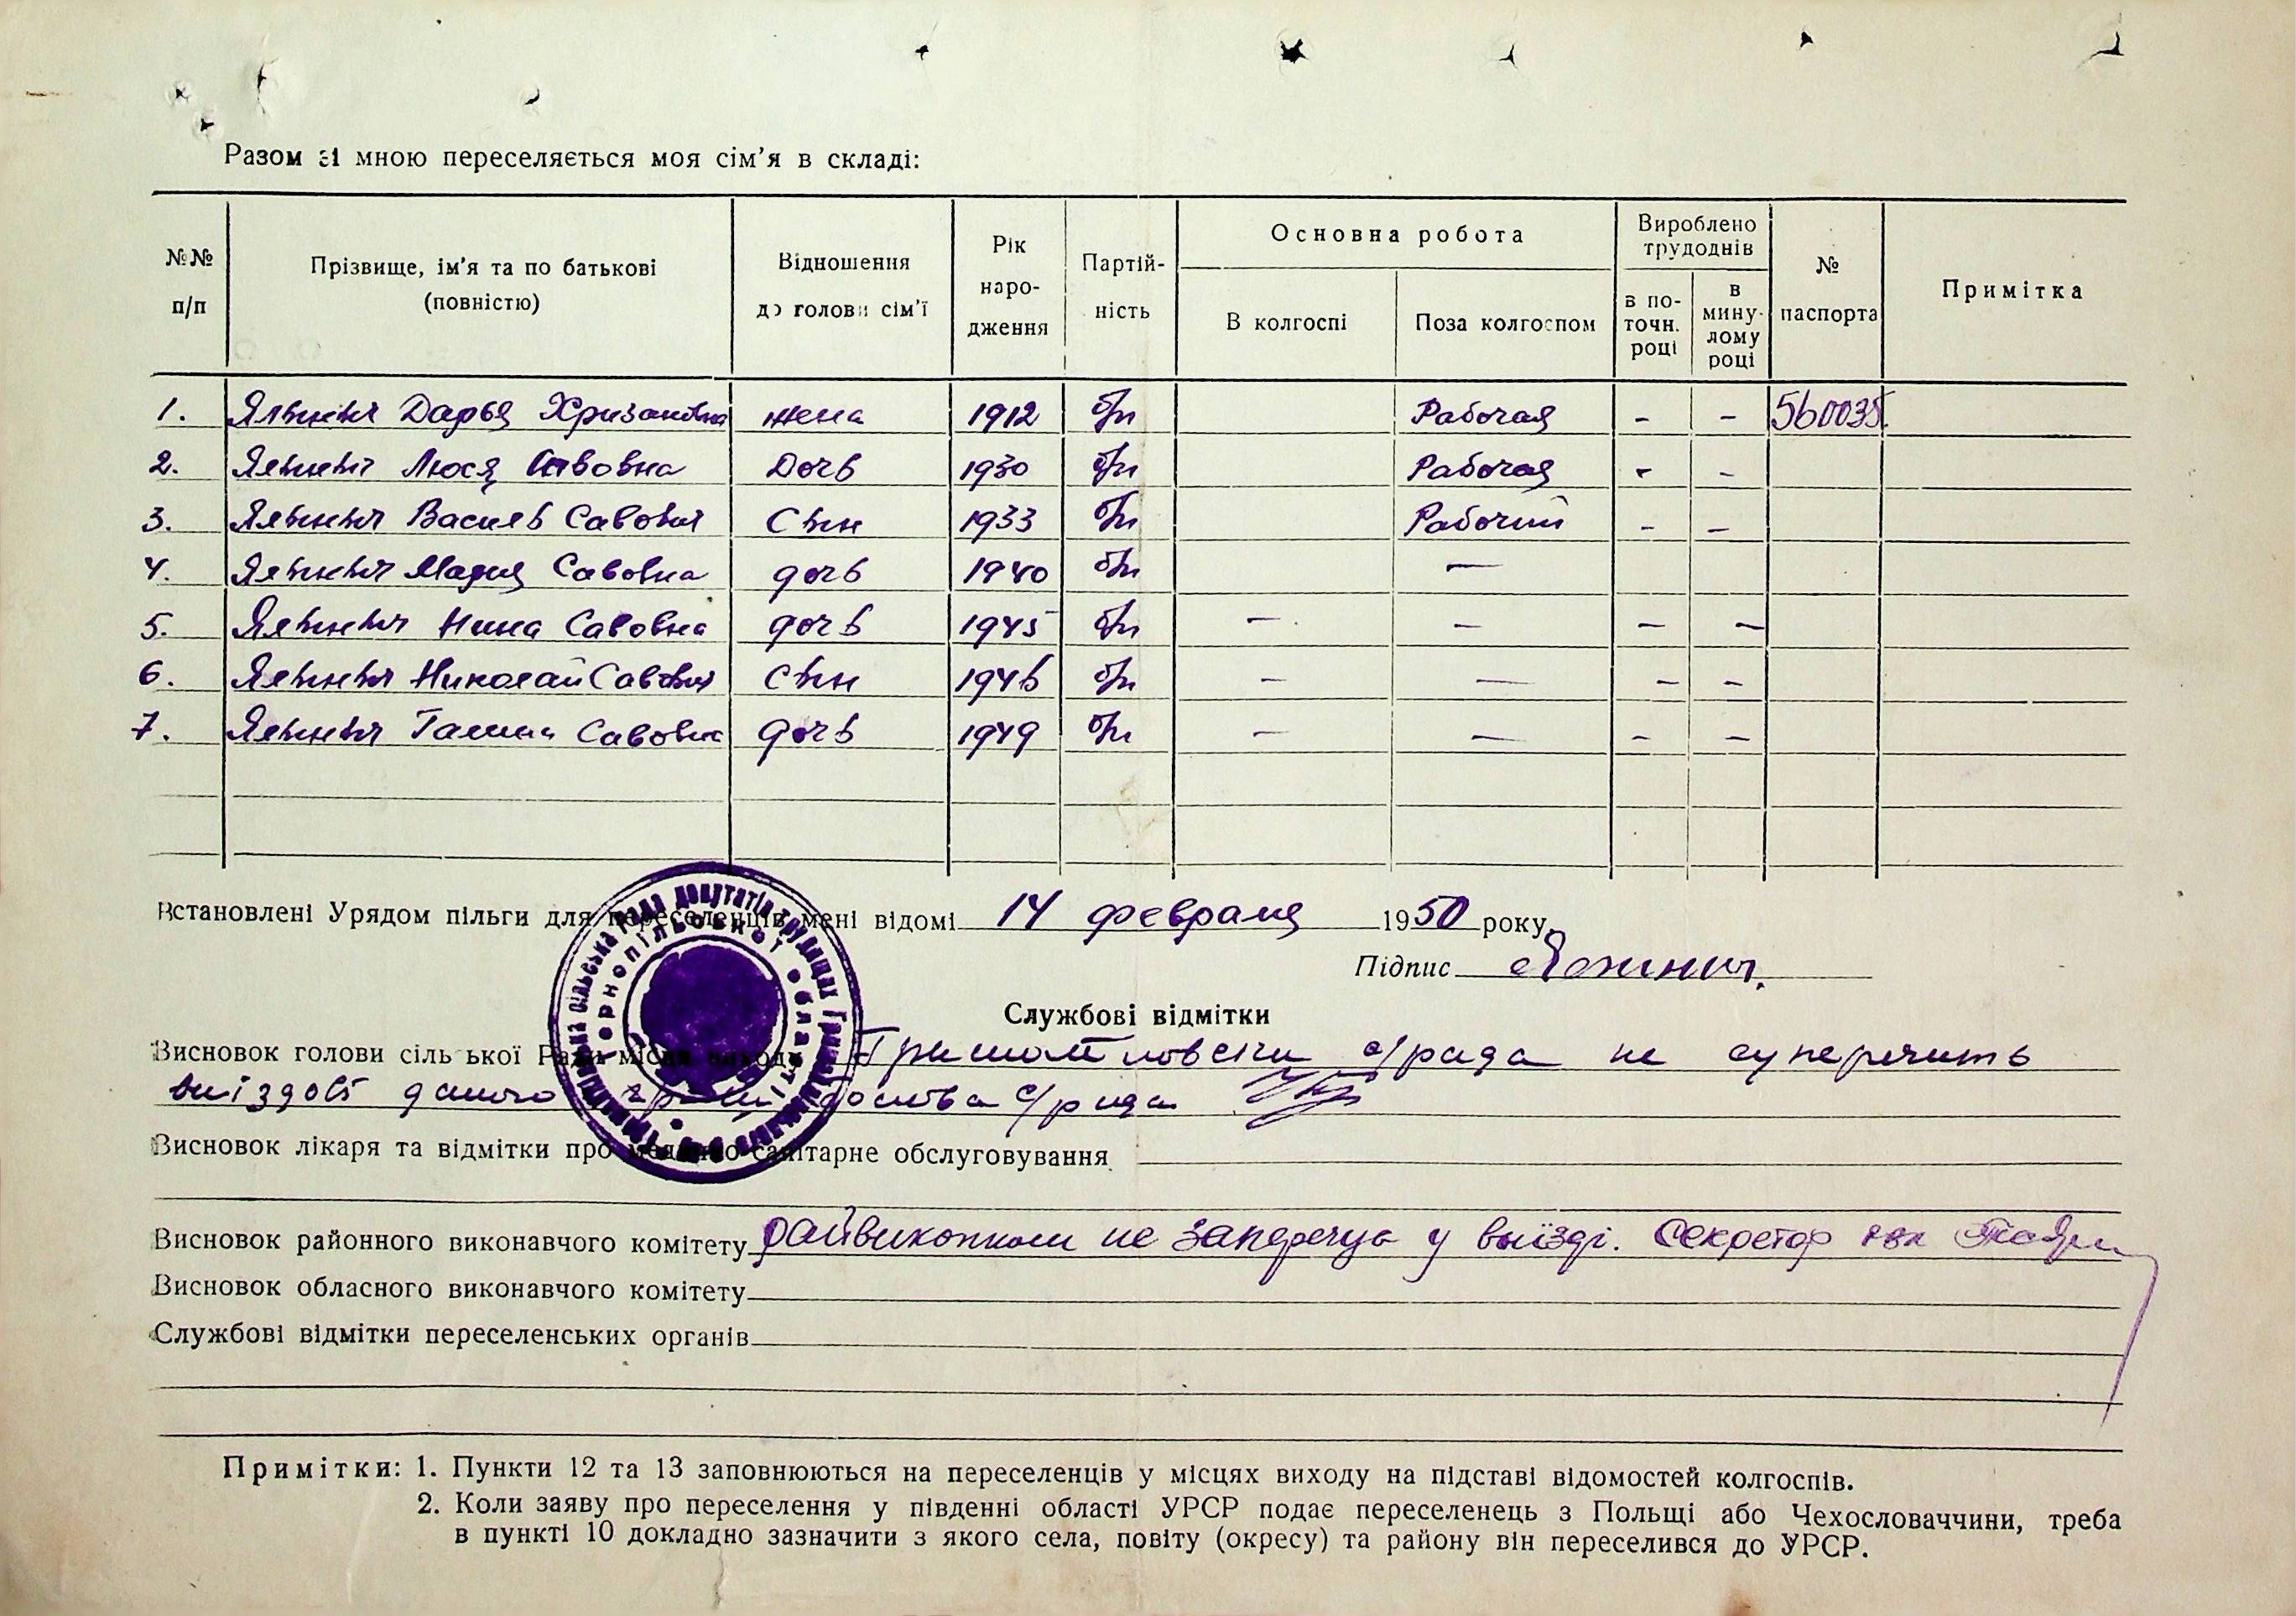 Разом зі мною переселяється моя сім'я в складі:
№№ п/п
Прізвище, ім'я та по батькові (повністю)
Відношення до голови сім'ї
Рік народження
Партійність
Основна робота
В колгоспі
Поза колгоспом
Вироблено трудоднів
в поточн. році
в минулому році
№ паспорта
Примітка
1. Дарья жена 1912 б/п Рабочая - - 560035
2. Люся Савовна Дочь 1930 б/п Рабочая - -
3. Василь Савович Сын 1933 б/п Рабочий - -
4. Мария Савовна дочь 1940 б/п —
5. Нина Савовна дочь 1945 б/п — — — —
6. Николай Савович Сын 1946 б/п — — — —
7. Галина Савовна дочь 1949 б/п — — — —
Встановлені Урядом пільги для переселенців мені відомі 14 февраля 1950 року.
Підпис
Службові відмітки
Висновок голови сільської Ради місця виходу с/рада не суперечить
виїздові даного с/рада
Висновок лікаря та відмітки про медично-санітарне обслуговування
Висновок районного виконавчого комітету райвиконком не заперечує у виїзді. Секретар рвк
Висновок обласного виконавчого комітету
Службові відмітки переселенських органів
Примітки: 1. Пункти 12 та 13 заповнюються на переселенців у місцях виходу на підставі відомостей колгоспів.
2. Коли заяву про переселення у південні області УРСР подає переселенець з Польщі або Чехословаччини, треба
в пункті 10 докладно зазначити з якого села, повіту (окресу) та району він переселився до УРСР.
сільська Рада депутатів трудящих
Тернопільської області